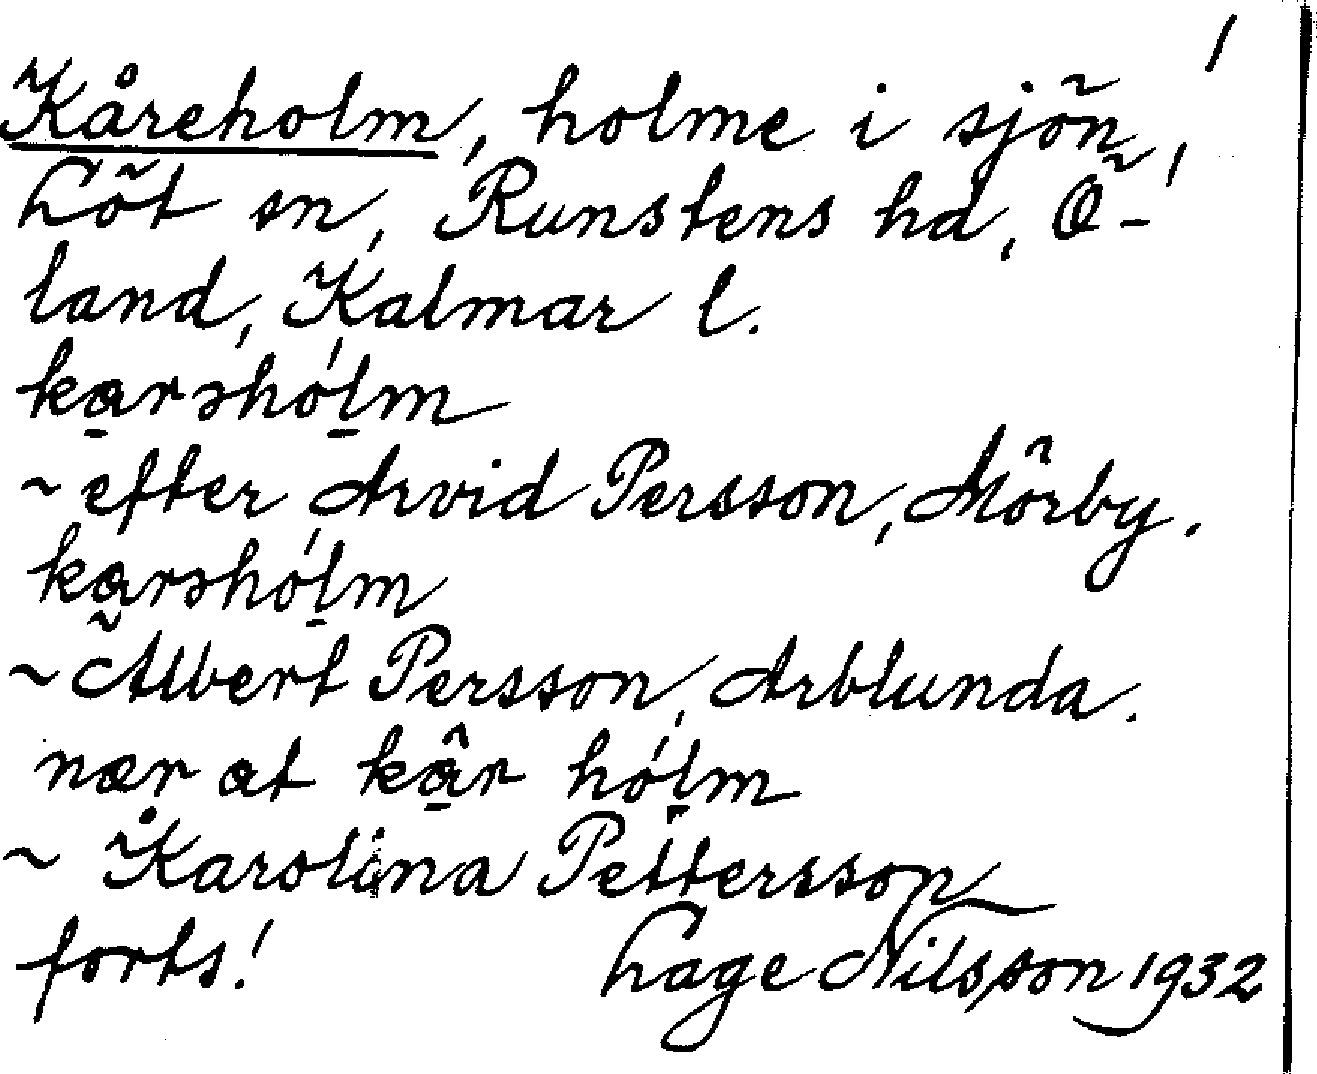 Kåreholm, holme i sjön,
Löt sn, Runstens hd, Ö-
land, Kalmar l.
karəhólm
~ efter Arvid Persson, Mörby.
karəhólm
~ Albert Persson, Arblunda.
nær at kâr hólm
~ Karolina Pettersson
forts! Lage Nilsson 1932